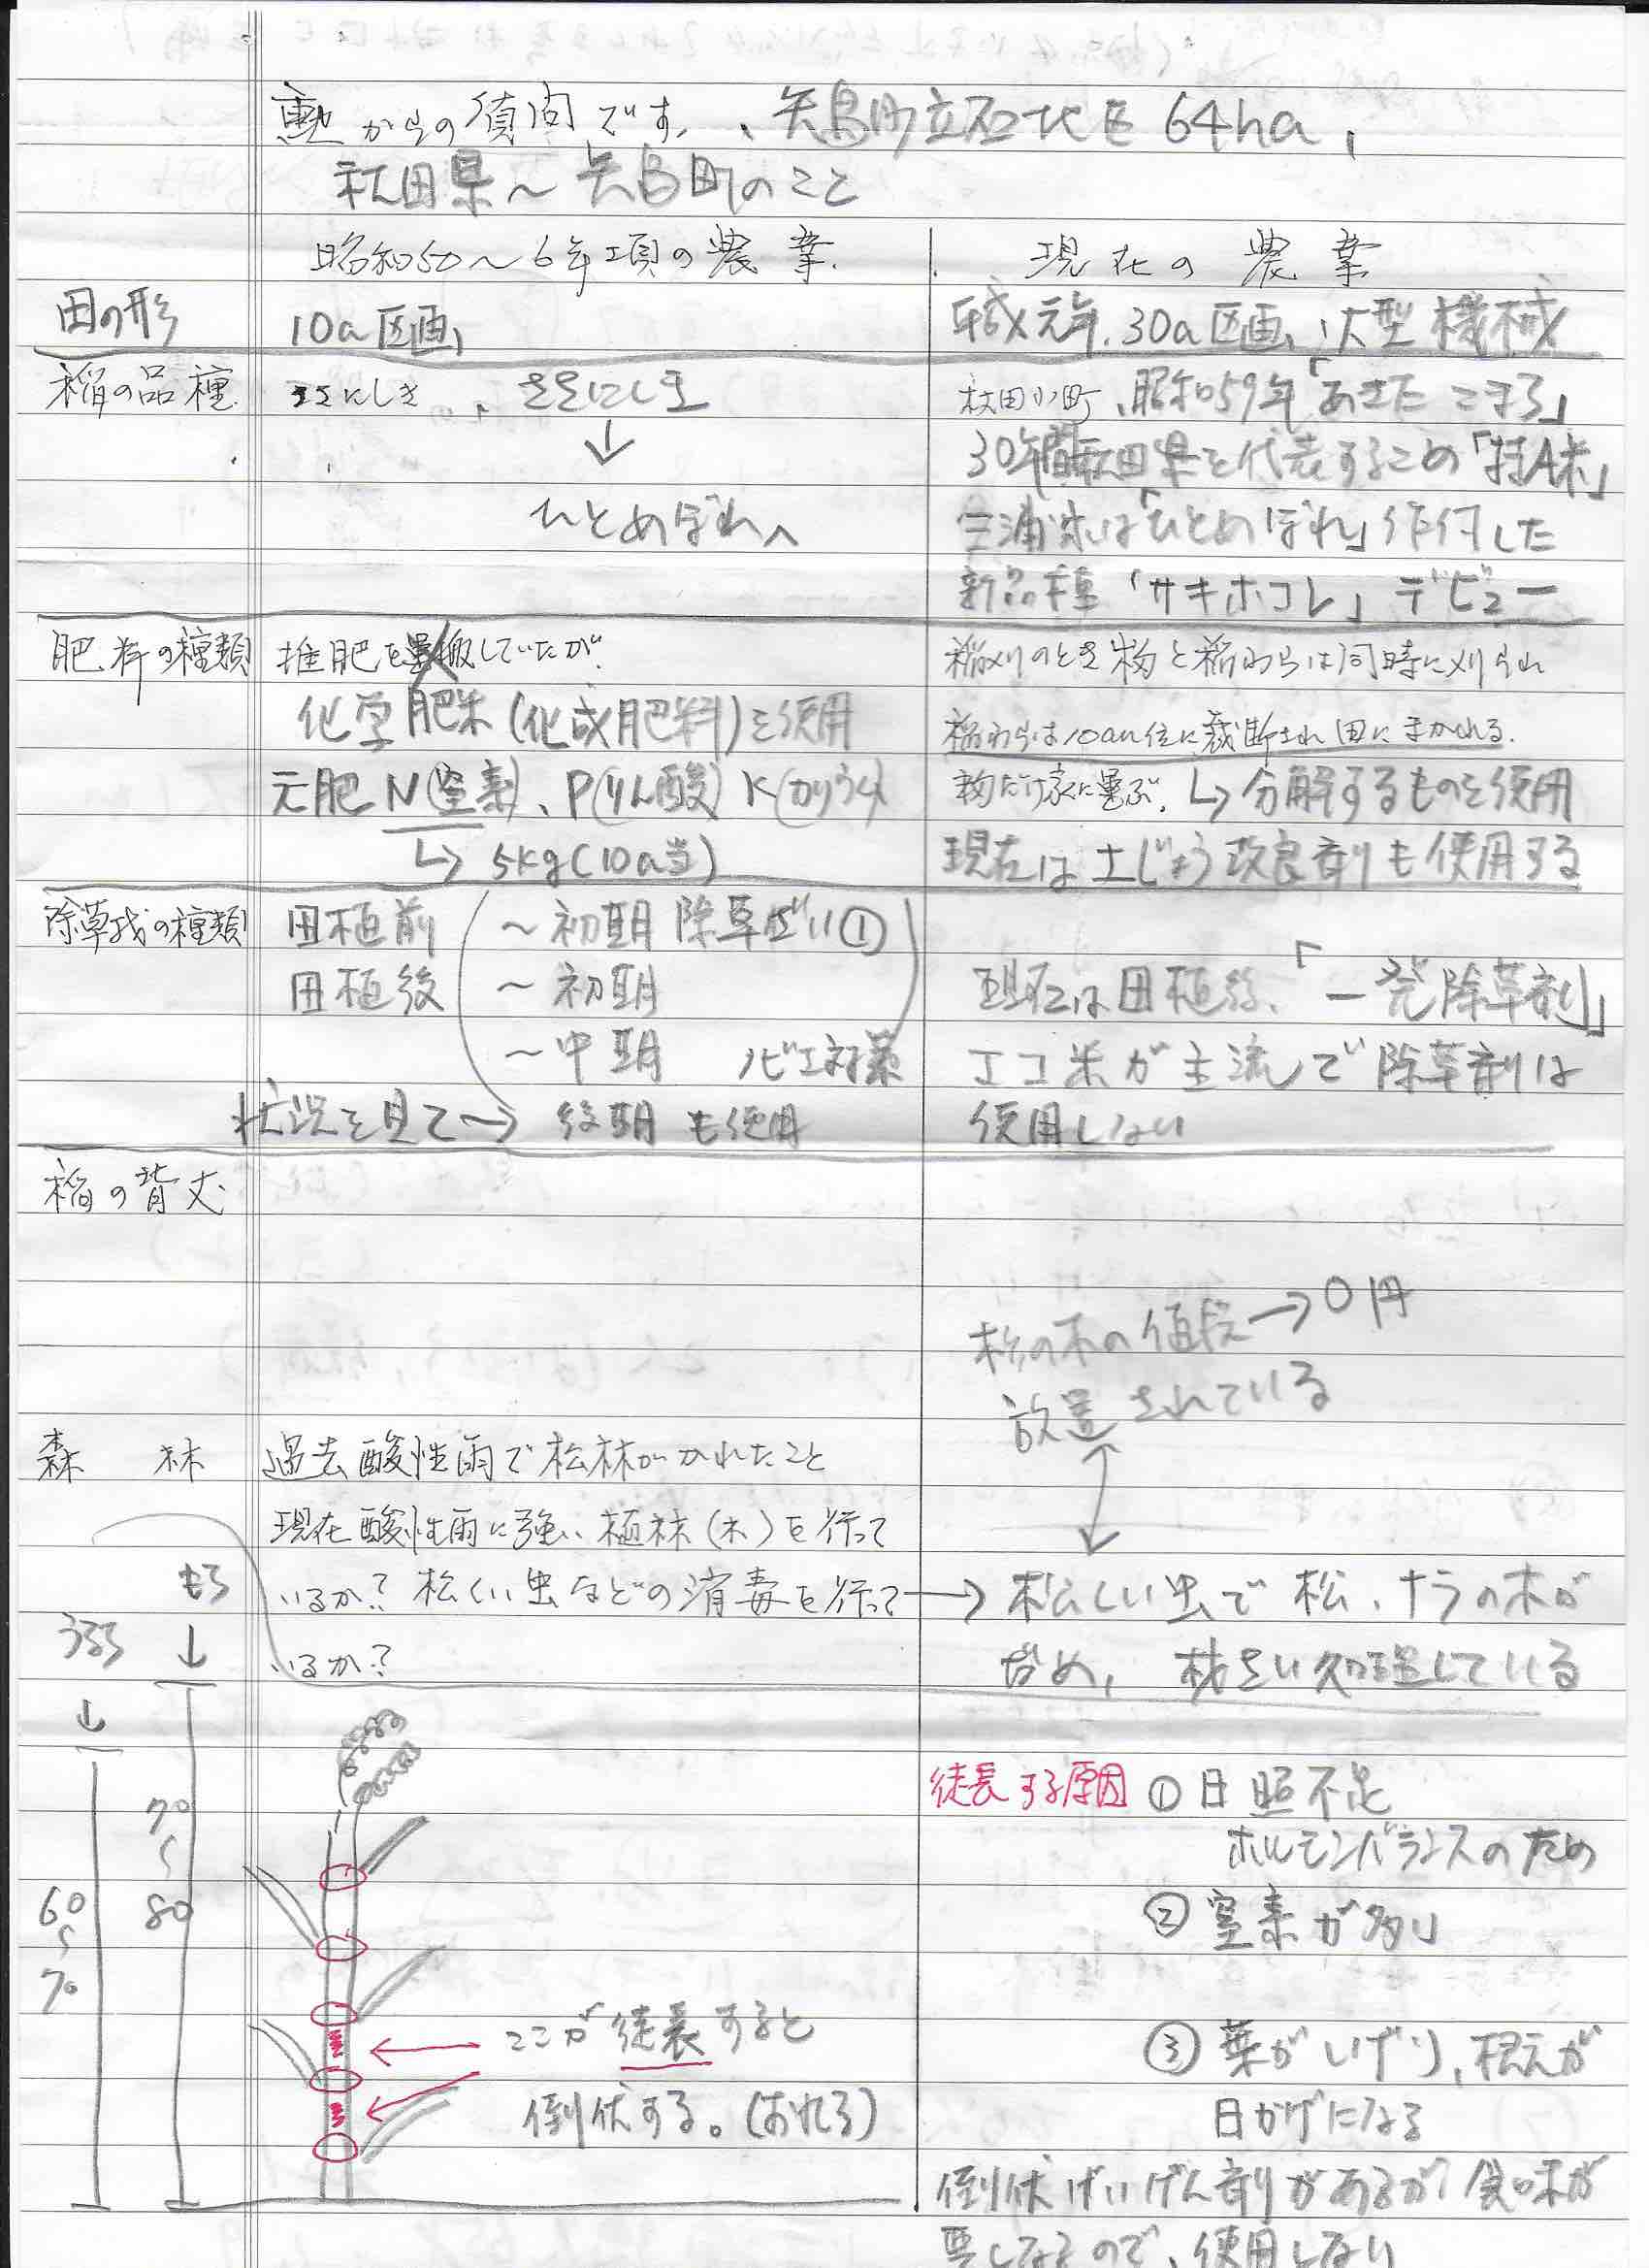 勲からの質問です、、矢島町立石地区 64ha、
秋田県〜矢島町のこと
昭和50〜6年頃の農業. 現在の農業
田の形 10a区画、 平成元年. 30a区画、大型機械
稲の品種 ささにしき 、ささにしき 秋田小町、昭和59年「あきたこまち」
↓ 30年間秋田県を代表するこめ「特A米」
ひとめぼれへ 三浦家は「ひとめぼれ」作付した
新品種「サキホコレ」デビュー
肥料の種類 推肥を運搬していたが 稲刈のとき籾と稲わらは同時に刈られ
化学肥料(化成肥料)を使用 稲わらは10cm位に裁断され田にまかれる.
元肥 N(窒素)、P(りん酸) K(かりうム) 籾だけ家に運ぶ. ↳ 分解するものを使用
↳ 5kg(10a当) 現在は土じょう改良剤も使用する
除草剤の種類 田植前 〜初期 除草ざい①
田植後 〜初期 現在は田植後、「一発除草剤」
〜中期 ノビエ対策 エコ米が主流で除草剤は
状況を見て→ 後期も使用 使用しない
稲の背丈
杉の木の値段→0円
放置されている
森林 過去酸性雨で松林がかれたこと
現在酸性雨に強い植林(木)を行って
もち いるか? 松くい虫などの消毒を行って → 松しい虫で 松、ナラの木が
うるち ↓ いるか? だめ, している
↓
徒長する原因 ① 日照不足
70〜80 ホルモンバランスのため
60〜70 ② 窒素が多い
ここが徒長すると ③ 葉がしげり、根元が
倒伏する。(おれる) 日かげになる
倒伏けいげん剤があるが食味が
悪しなるので、使用しない